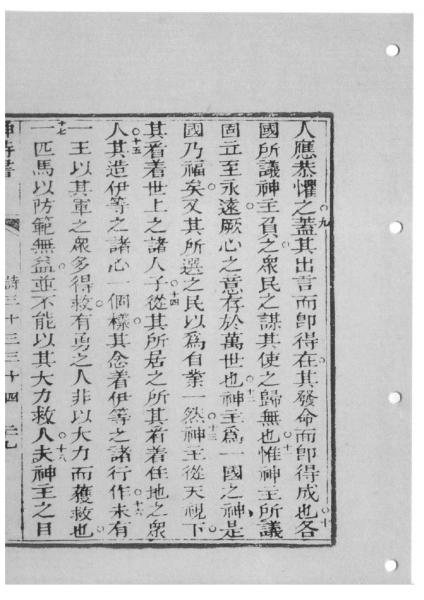 人應恭懼之蓋其出言而卽得在其發命而卽得成也各
國所議神主負之衆民之謀其使之歸無也惟神主所議
固立至永遠厥心之意存於萬世也神主爲一國之神是
國乃福矣又其所選之民以爲自業一然神主從天視下
其看着世上之諸人子從其所居之所其看着住地之衆
人其造伊等之諸心一個樣其念着伊等之諸行作未有
一王以其軍之衆多得救有勇之人非以大力而獲救也
一匹馬以防範無益並不能以其大力救人夫神主之目
神詩書 詩三十三 三十四